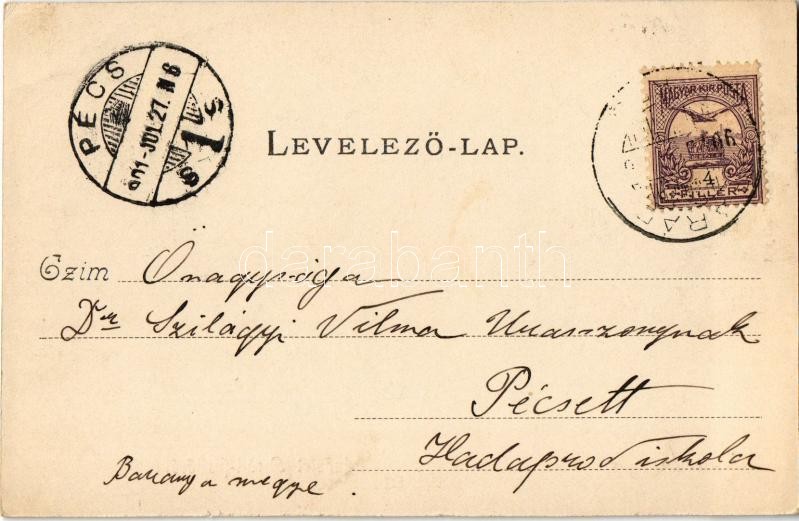 PÉCS
901-JUL.27. N6
S 1 S
LEVELEZŐ-LAP.
MAGYAR KIR. POSTA
4
FILLÉR
darabanth
Czim Őnagysága
Dr Szilágyi Vilma Urasszonynak
Pécsett
Hadapród iskola
Baranya megye.